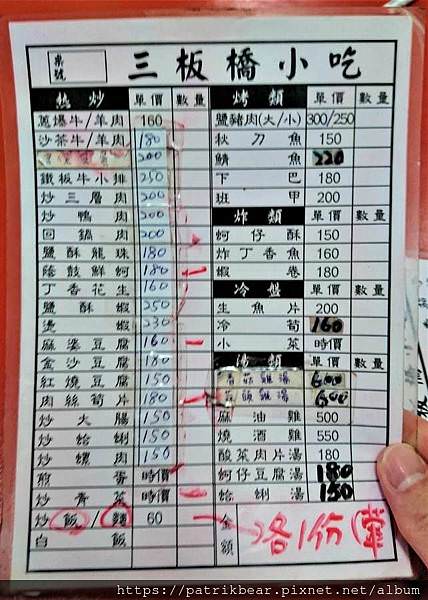 桌號
三板橋小吃
熱炒 單價 數量
蔥爆牛/羊肉 160
沙茶牛/羊肉 180
200
鐵板牛小排 250
炒三層肉 200
炒鴨肉 200
回鍋肉 200
鹽酥龍珠 180
蔭鼓鮮蚵 180
丁香花生 160
鹽酥蝦 250
燙蝦 230
麻婆豆腐 160
金沙豆腐 180
紅燒豆腐 150
肉絲筍片 180
炒大腸 150
炒蛤蜊 150
炒螺肉 150
煎蛋 時價
炒青菜 時價
炒飯/麵 60
白飯
烤類 單價 數量
鹽豬肉(大/小) 300/250
秋刀魚 150
鯖魚 220
下巴 180
班甲 200
炸類 單價 數量
蚵仔酥 150
炸丁香魚 160
蝦卷 180
冷盤 單價 數量
生魚片 200
冷筍 160
小菜 時價
湯類 單價 數量
香菇雞湯 600
蒜頭雞湯 600
麻油雞 500
燒酒雞 550
酸菜肉片湯 180
蚵仔豆腐湯 180
蛤蜊湯 150
金額
各1份
https://patrikbear.pixnet.net/album